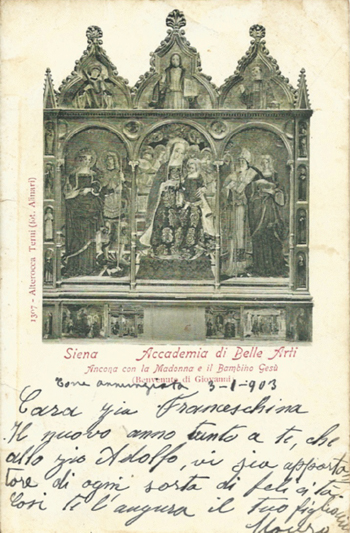 1307 - Alterocca Terni (fot. Alinari)
Siena Accademia di Belle Arti
Ancona con la Madonna e il Bambino Gesù
(Benvenuto di Giovanni)
Torre annunziata 3-1-903
Cara zia Franceschina
Il nuovo anno tanto a te, che
allo zio Adolfo, vi sia apporta
tore di ogni sorta di felicità.
Così te l'augura il tuo